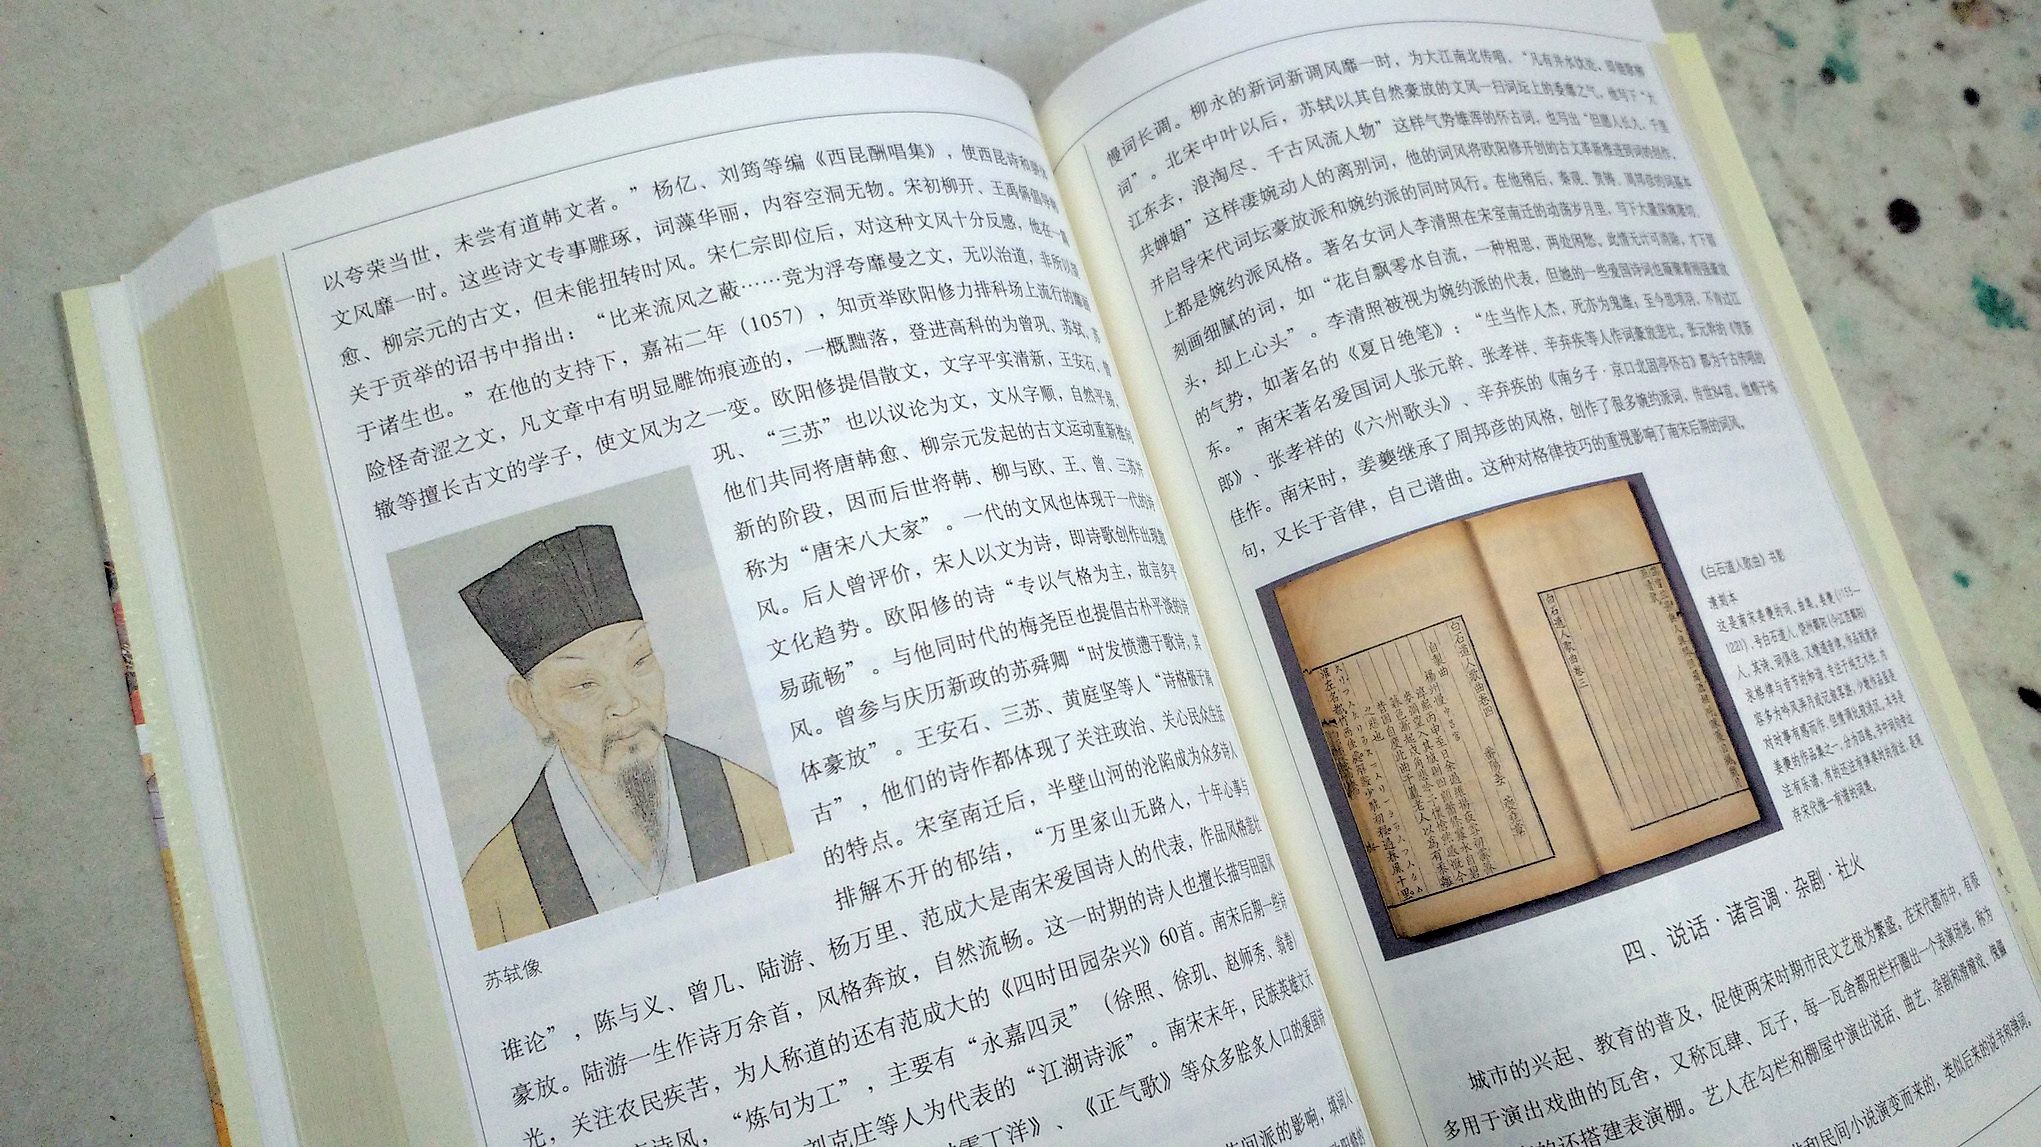 以夸荣当世，未尝有道韩文者。”杨亿、刘筠等编《西昆酬唱集》，使西昆诗和骈体
文风靡一时。这些诗文专事雕琢，词藻华丽，内容空洞无物。宋初柳开、王禹偁倡导韩
愈、柳宗元的古文，但未能扭转时风。宋仁宗即位后，对这种文风十分反感，他在一篇
关于贡举的诏书中指出：“比来流风之蔽……竞为浮夸靡曼之文，无以治道，非所以
于诸生也。”在他的支持下，嘉祐二年（1057），知贡举欧阳修力排科场上流行的
险怪奇涩之文，凡文章中有明显雕饰痕迹的，一概黜落，登进高科的为曾巩、苏轼、苏
辙等擅长古文的学子，使文风为之一变。欧阳修提倡散文，文字平实清新，王安石、曾
巩、“三苏”也以议论为文，文从字顺，自然平易、
他们共同将唐韩愈、柳宗元发起的古文运动重新推向
新的阶段，因而后世将韩、柳与欧、王、曾、三苏并
称为“唐宋八大家”。一代的文风也体现于一代的诗
风。后人曾评价，宋人以文为诗，即诗歌创作出现散
文化趋势。欧阳修的诗“专以气格为主，故言多平
易疏畅”。与他同时代的梅尧臣也提倡古朴平淡的诗
风。曾参与庆历新政的苏舜卿“时发愤懑于歌诗，其
体豪放”。王安石、三苏、黄庭坚等人“诗格极于高
古”，他们的诗作都体现了关注政治、关心民众生活
的特点。宋室南迁后，半壁山河的沦陷成为众多诗人
排解不开的郁结，“万里家山无路人，十年心事与
苏轼像
谁论”，陈与义、曾几、陆游、杨万里、范成大是南宋爱国诗人的代表，作品风格悲壮
豪放。陆游一生作诗万余首，风格奔放，自然流畅。这一时期的诗人也擅长描写田园风
光，关注农民疾苦，为人称道的还有范成大的《四时田园杂兴》60首。南宋后期一些诗
诗风，“炼句为工”，主要有“永嘉四灵”（徐照、徐玑、赵师秀、翁卷）
刘克庄等人为代表的“江湖诗派”。南宋末年，民族英雄文天
丁洋》、《正气歌》等众多脍炙人口的爱国诗
间派的影响，填词人
慢词长调。柳永的新词新调风靡一时，为大江南北传唱，“凡有井水饮处，即能歌柳
词”。北宋中叶以后，苏轼以其自然豪放的文风一扫词坛上的委靡之气，他写下“大
江东去，浪淘尽、千古风流人物”这样气势雄浑的怀古词，也写出“但愿人长久，千里
共婵娟”这样凄婉动人的离别词，他的词风将欧阳修开创的古文革新推进到词的创作，
并启导宋代词坛豪放派和婉约派的同时风行。在他稍后，秦观、贺铸、周邦彦的词基本
上都是婉约派风格。著名女词人李清照在宋室南迁的动荡岁月里，写下大量深婉
刻画细腻的词，如“花自飘零水自流，一种相思，两处闲愁。此情无计可消除，才下眉
头，却上心头”。李清照被视为婉约派的代表，但她的一些爱国诗词也
的气势，如著名的《夏日绝笔》：“生当作人杰，死亦为鬼雄；至今思项羽，不肯过江
东。”南宋著名爱国词人张元幹、张孝祥、辛弃疾等人作词豪放悲壮。张元幹的《贺新
郎》、张孝祥的《六州歌头》、辛弃疾的《南乡子·京口北固亭怀古》都为千古传唱的
佳作。南宋时，姜夔继承了周邦彦的风格，创作了很多婉约派词，传世84首。他精于炼
句，又长于音律，自己谱曲。这种对格律技巧的重视影响了南宋后期的词风。
白石道人歌曲卷四
自製曲
揚州慢 中呂宮
白石道人歌曲卷三
《白石道人歌曲》书影
清刻本
这是南宋姜夔的词、曲集。姜夔（1155—
1221），号白石道人，饶州鄱阳（今江西鄱阳）
人，其诗、词俱佳，又精通音律，作品
求格律与音节的和谐，专注于
容多为吟风弄月或记叙
对时事有感而作，但情调比较消沉。本书是
姜夔的作品集之一，分为四卷，书中词
注有乐谱，有的还注有弹奏时的指法，是现
存宋代惟一有谱的词集。
四、说话·诸宫调·杂剧·社火
城市的兴起、教育的普及，促使两宋时期市民文艺极为繁盛。在宋代都市中，有很
多用于演出戏曲的瓦舍，又称瓦肆、瓦子，每一瓦舍都用栏杆圈出一个表演场地，称为
的还搭建表演棚。艺人在勾栏和棚屋中演出说话、曲艺、杂剧和滑稽戏、傀儡
和民间小说演变而来的，类似后来的说书和弹词，